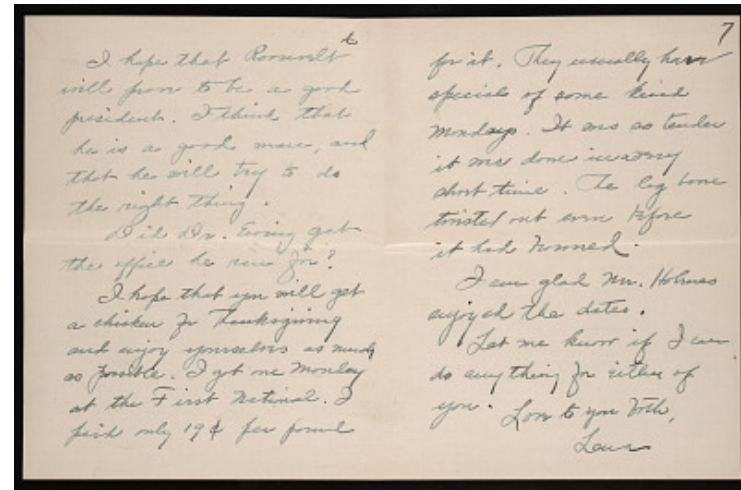 6
I hope that Roosevelt
will prove to be a good
president. I think that
he is a good man, and
that he will try to do
the right thing.
Did Dr. Ewing get
the office he ran for?
I hope that you will get
a chicken for Thanksgiving
and enjoy yourselves as much
as possible. I got one Monday
at the First National. I
paid only 19¢ per pound
7
for it. They usually have
specials of some kind
Mondays. It was so tender
it was done in a very
short time. The leg bone
twisted out even before
it had browned.
I am glad Mr. Holmes
enjoyed the dates.
Let me know if I can
do anything for either of
you. Love to you both,